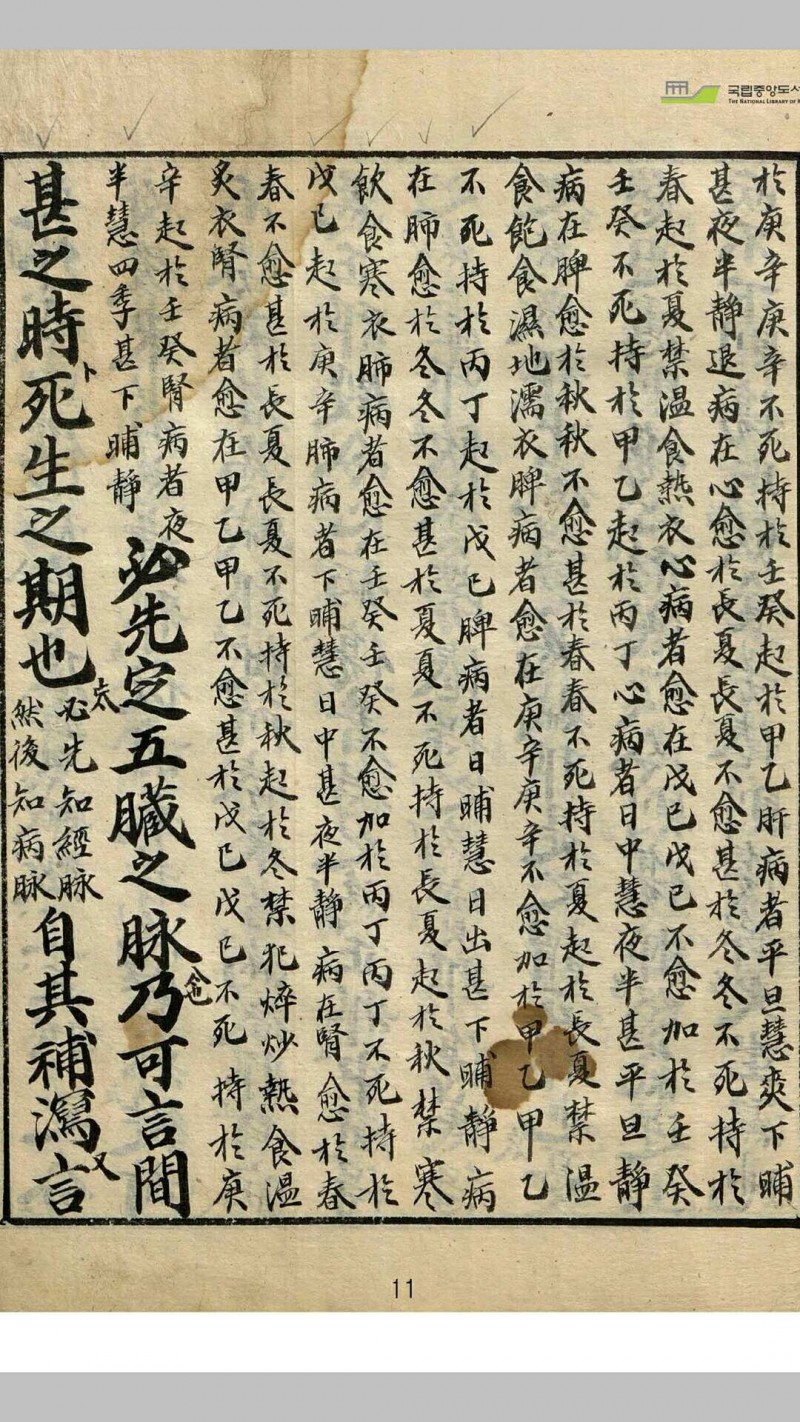 국립중앙도서
THE NATIONAL LIBRARY OF
於庚辛庚辛不死持於壬癸起於甲乙肝病者平旦慧爽下晡
甚夜半靜退病在心愈於長夏長夏不愈甚於冬冬不死持於
春起於夏禁溫食熱衣心病者愈在戊己戊己不愈加於壬癸
壬癸不死持於甲乙起於丙丁心病者日中慧夜半甚平旦靜
病在脾愈於秋秋不愈甚於春春不死持於夏起於長夏禁溫
食飽食濕地濡衣脾病者愈在庚辛庚辛不愈加於甲乙甲乙
不死持於丙丁起於戊己脾病者日晡慧日出甚下晡靜病
在肺愈於冬冬不愈甚於夏夏不死持於長夏起於秋禁寒
飲食寒衣肺病者愈在壬癸壬癸不愈加於丙丁丙丁不死持於
戊己起於庚辛肺病者下晡慧日中甚夜半靜病在腎愈於春
春不愈甚於長夏長夏不死持於秋起於冬禁犯焠炒熱食溫
炙衣腎病者愈在甲乙甲乙不愈甚於戊己戊己不死持於庚
辛起於壬癸腎病者夜
半慧四季甚下晡靜
必先定五臟之脉乃可言間
甚之時卜死生之期也
太必先知經脉
然後知病脉
自其補瀉言又
11